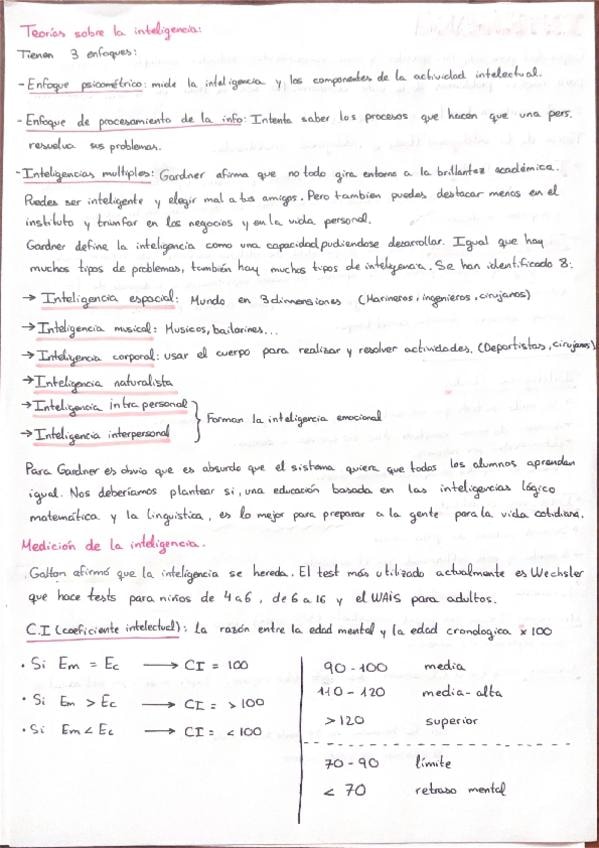 Teorías sobre la inteligencia:
Tienen 3 enfoques:
- Enfoque psicométrico: mide la inteligencia y los componentes de la actividad intelectual.
- Enfoque de procesamiento de la info: Intenta saber los procesos que hacen que una pers.
resuelva sus problemas.
- Inteligencias multiples: Gardner afirma que no todo gira entorno a la brillantez académica.
Puedes ser inteligente y elegir mal a tus amigos. Pero tambien puedes destacar menos en el
instituto y triunfar en los negocios y en la vida personal.
Gardner define la inteligencia como una capacidad, pudiendose desarrollar. Igual que hay
muchos tipos de problemas, también hay muchos tipos de inteligencia. Se han identificado 8:
→ Inteligencia espacial: Mundo en 3 dimensiones (Marineros, ingenieros, cirujanos)
→ Inteligencia musical: Musicos, bailarines...
→ Inteligencia corporal: usar el cuerpo para realizar y resolver actividades. (Deportistas, cirujanos)
→ Inteligencia naturalista
→ Inteligencia intrapersonal
→ Inteligencia interpersonal } Forman la inteligencia emocional
Para Gardner es obvio que es absurdo que el sistema quiera que todos los alumnos aprendan
igual. Nos deberíamos plantear si, una educación basada en las inteligencias lógico
matemática y la linguistica, es lo mejor para preparar a la gente para la vida cotidiana.
Medición de la inteligencia.
Galton afirmó que la inteligencia se hereda. El test más utilizado actualmente es Wechsler
que hace tests para niños de 4 a 6, de 6 a 16 y el WAIS para adultos.
C.I (coeficiente intelectual): la razón entre la edad mental y la edad cronologica x 100
• Si Em = Ec → CI = 100
• Si Em > Ec → CI = > 100
• Si Em < Ec → CI = < 100
90 - 100 media
110 - 120 media-alta
> 120 superior
70 - 90 límite
< 70 retraso mental